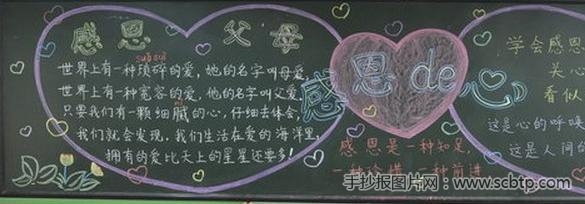 感恩父母
suǒ suì
世界上有一种琐碎的爱，她的名字叫母爱，
世界上有一种宽容的爱，他的名字叫父爱，
只要我们有一颗细腻的心，仔细去体会，
我们就会发现，我们生活在爱的海洋里，
拥有的爱比天上的星星还要多！
感恩de心
感恩是一种知足，
一种前进
学会感恩
关心
看似
这是心的呼唤
这是人间的
手抄报图片网：www.scbtp.com